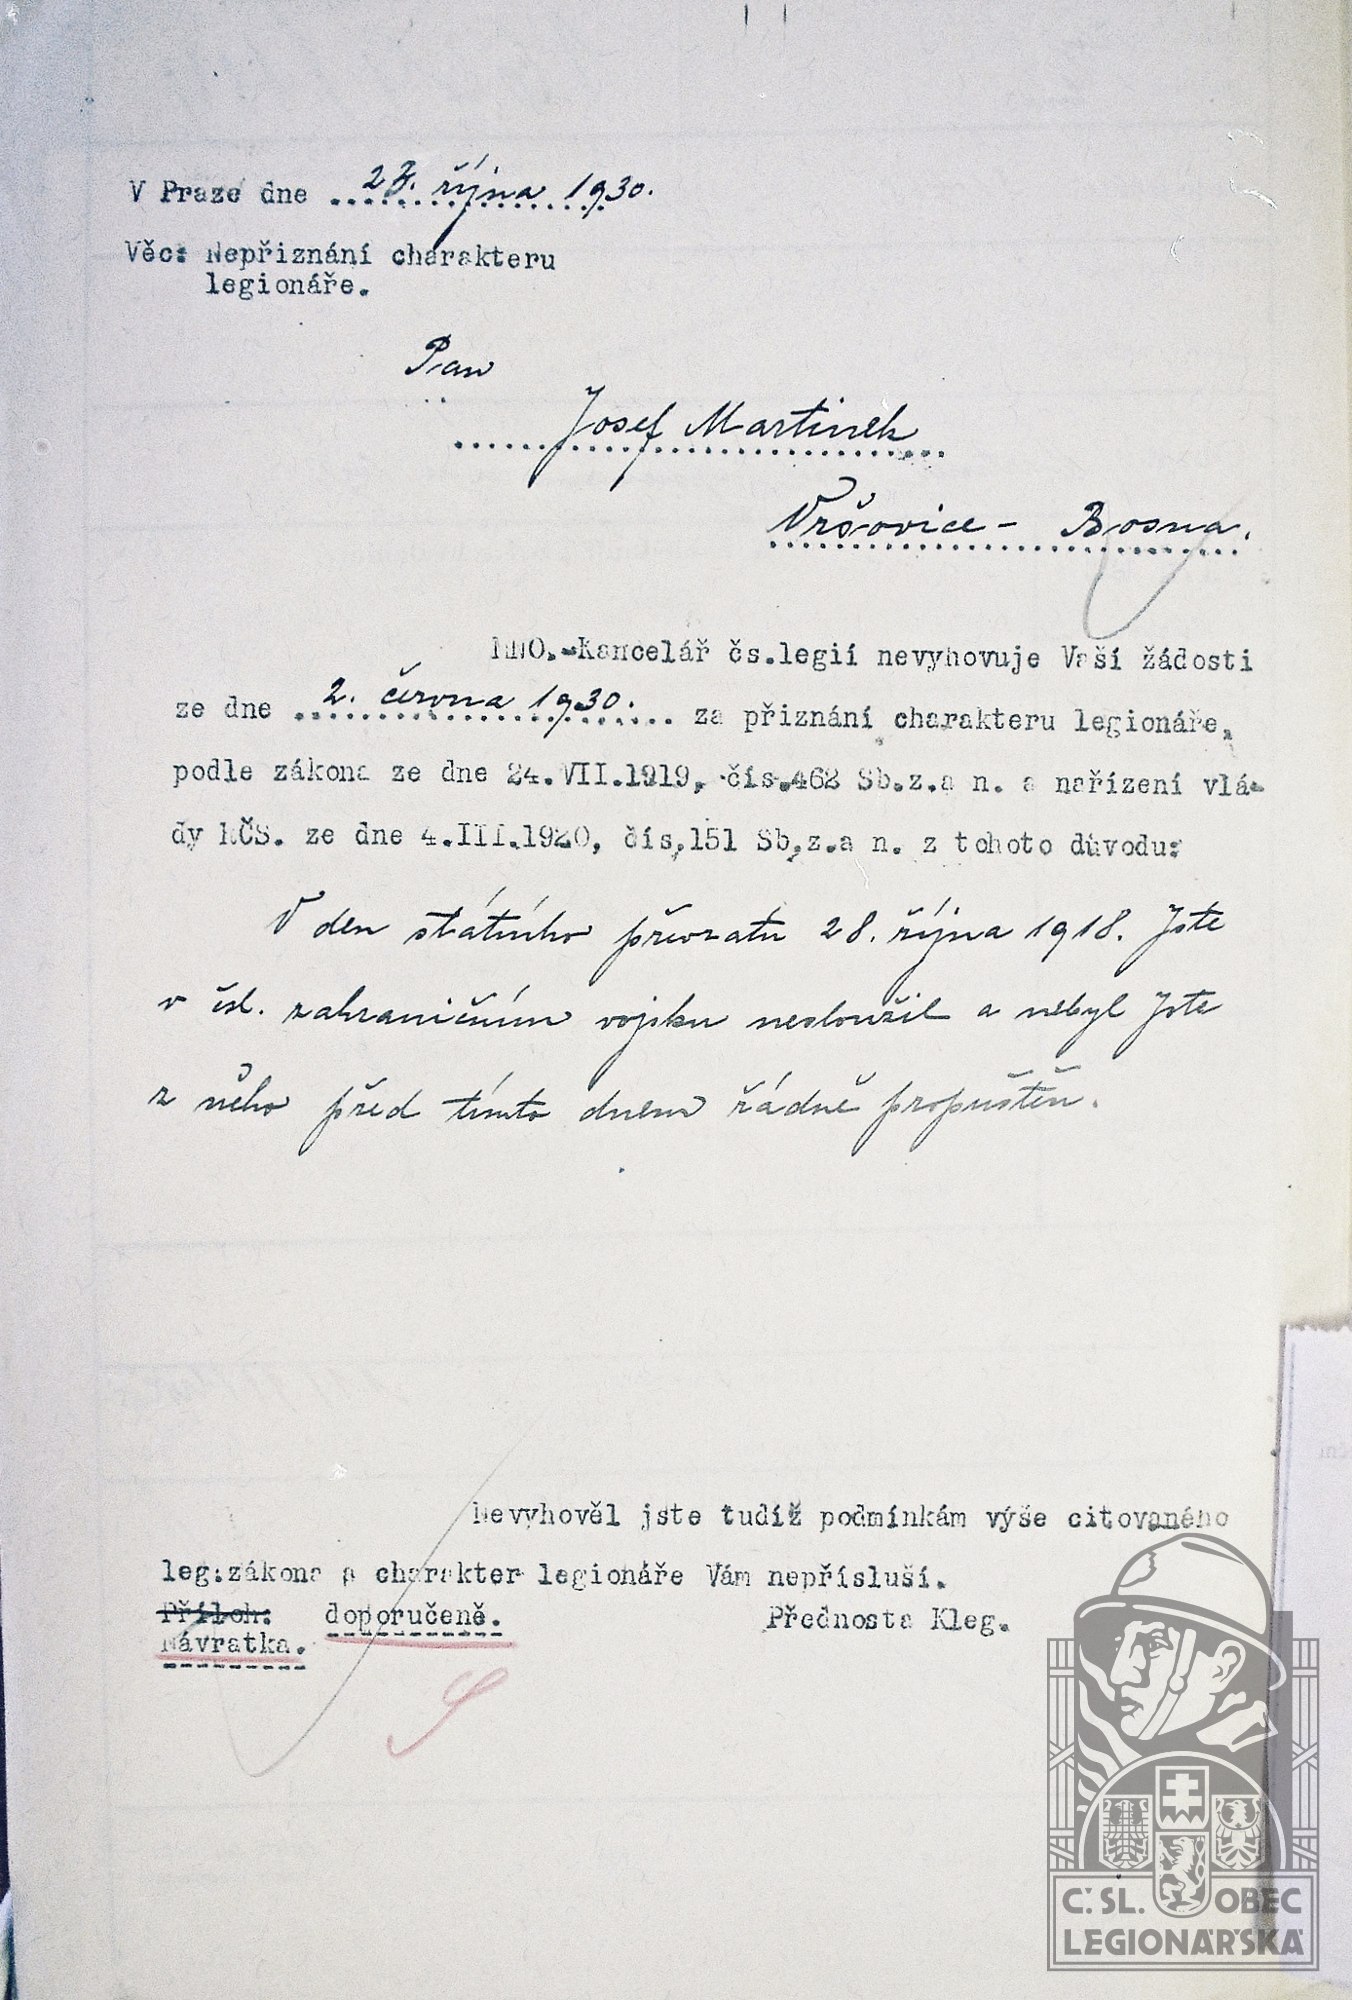 V Praze dne 27. října 1930.
Věc: Nepřiznání charakteru
legionáře.
Pan
Josef Martinek
Vršovice - Bosna.
MNO.-Kancelář čs.legií nevyhovuje Vaší žádosti
ze dne 2. června 1930. za přiznání charakteru legionáře,
podle zákona ze dne 24.VII.1919, čís.462 Sb.z.a n. a nařízení vlá-
dy RČS. ze dne 4.III.1920, čís.151 Sb.z.a n. z tohoto důvodu:
V den státního převratu 28. října 1918. Jste
v čsl. zahraničním vojsku nesloužil a nebyl Jste
z něho před tímto dnem řádně propuštěn.
Nevyhověl jste tudíž podmínkám výše citovaného
leg.zákona a charakter legionáře Vám nepřísluší.
Příloh: doporučeně. Přednosta Kleg.
Návratka.
Č.SL. OBEC
LEGIONÁŘSKÁ